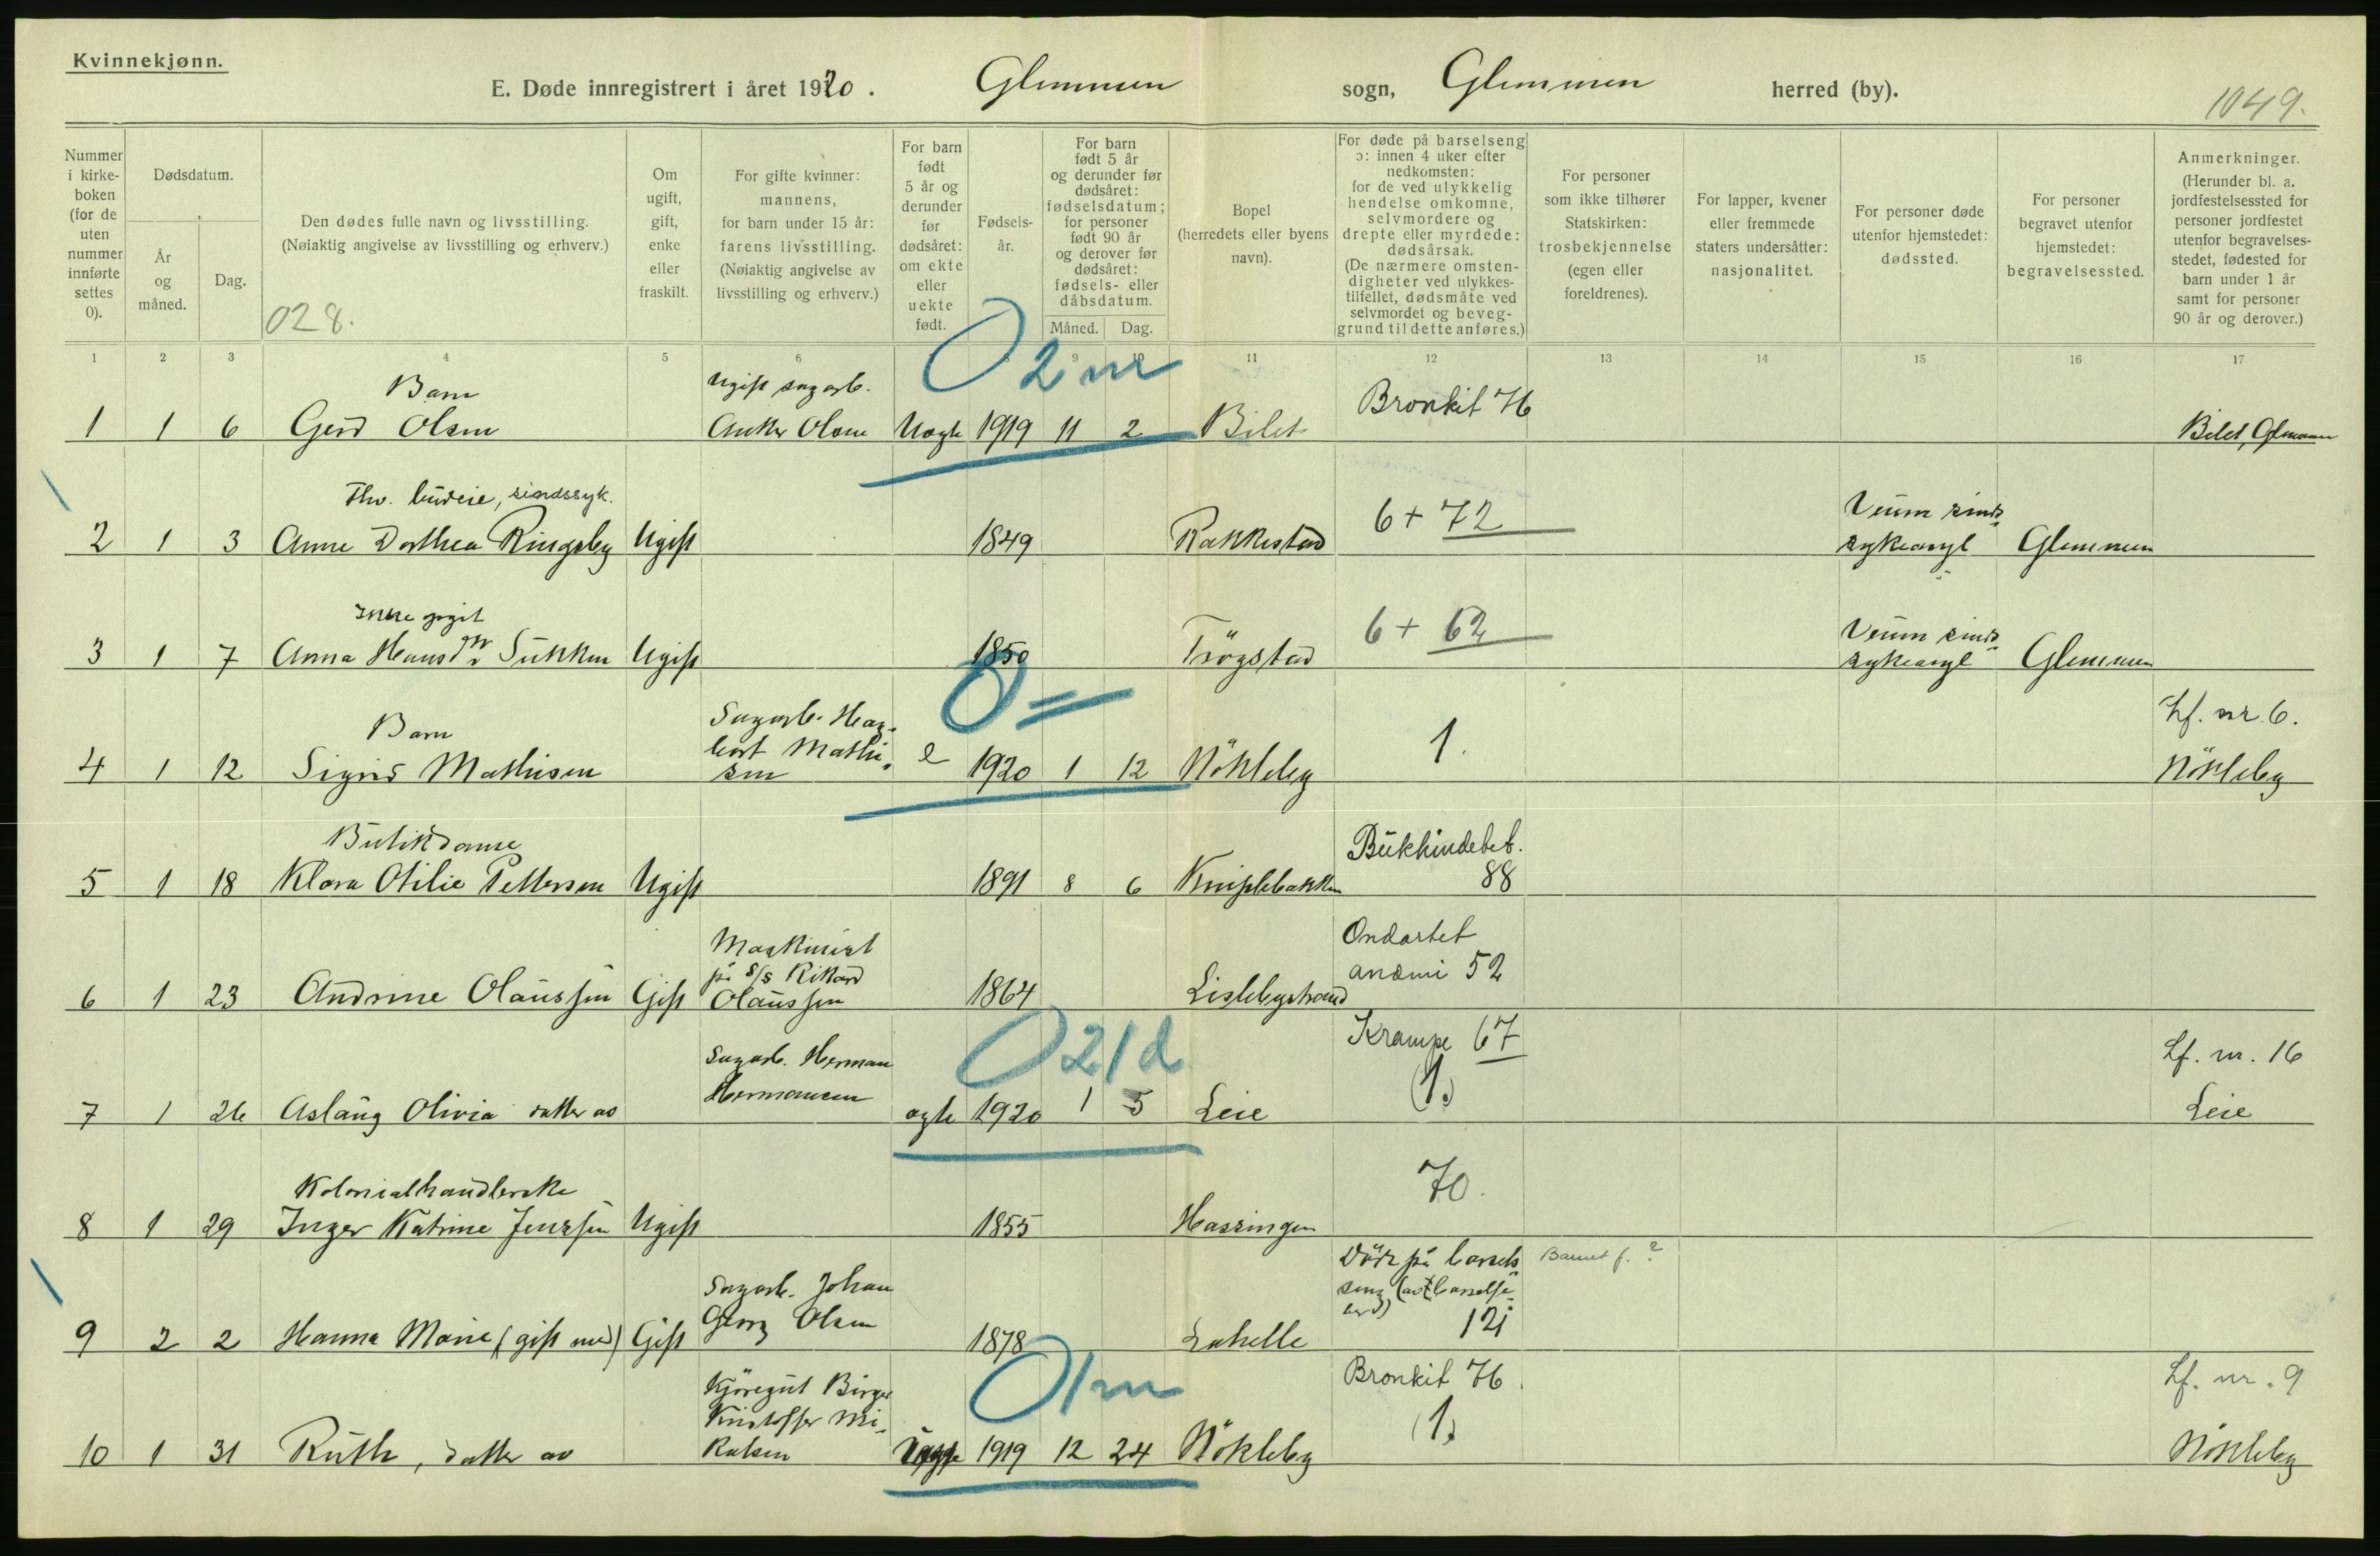 Kvinnekjønn.
E. Døde innregistrert i året 1920. Glemmen sogn, Glemmen herred (by).
1049.
Nummer i kirke- boken (for de uten nummer innførte settes 0).
Dødsdatum.
År og måned.
Dag.
Den dødes fulle navn og livsstilling.
(Nøiaktig angivelse av livsstilling og erhverv.)
028.
Om ugift, gift, enke eller fraskilt.
For gifte kvinner: mannens, for barn under 15 år: farens livsstilling. (Nøiaktig angivelse av livsstilling og erhverv.)
For barn født 5 år og derunder før dødsåret: om ekte eller uekte født.
Fødsels- år.
For barn født 5 år og derunder før dødsåret: fødselsdatum; for personer født 90 år og derover før dødsåret: fødsels- eller dåbsdatum.
Måned. Dag.
Bopel (herredets eller byens navn).
For døde på barselseng ɔ: innen 4 uker efter nedkomsten: for de ved ulykkelig hendelse omkomne, selvmordere og drepte eller myrdede: dødsårsak. (De nærmere omsten- digheter ved ulykkes- tilfellet, dødsmåte ved selvmordet og beveg- grund til dette anføres.)
For personer som ikke tilhører Statskirken: trosbekjennelse (egen eller foreldrenes).
For lapper, kvener eller fremmede staters undersåtter: nasjonalitet.
For personer døde utenfor hjemstedet: dødssted.
For personer begravet utenfor hjemstedet: begravelsessted.
Anmerkninger. (Herunder bl. a. jordfestelsessted for personer jordfestet utenfor begravelses- stedet, fødested for barn under 1 år samt for personer 90 år og derover.)
1 2 3 4 5 6 8 9 10 11 12 13 14 15 16 17
0 2 m
Barn Ugift sagarb. Bronkit 76
1 1 6 Gerd Olsen Anker Olsen Uægte 1919 11 2 Bilet Bilet, Glemmen
Fhv. budeie, sindssyk. 6+ 72 Veum sinds-
2 1 3 Anne Dorthea Ringsby Ugift 1849 Rakkestad sykeasyl Glemmen
Ikke opgit 6+ 62 Veum sinds-
3 1 7 Anna Hansdtr Sukken Ugift 1850 Trögstad sykeasyl Glemmen
0 =
Barn Sagarb. Hag- 1. Lf. nr. 6.
bart Mathi-
4 1 12 Sigrid Mathisen sen e 1920 1 12 Nökleby Nökleby
Butikdame Bukhindebet.
5 1 18 Klara Otilie Pettersen Ugift 1891 8 6 Kniplebakken 88
Maskinist Ondartet
på s/s Rikard anæmi 52
6 1 23 Andrine Olaussen Gift Olaussen 1864 Lislebystrand
0 21 d
Sagarb. Herman Krampe 67 Lf. nr. 16
7 1 26 Aslaug Olivia datter av Hermansen ægte 1920 1 5 Leie (1) Leie
Kolonialhandlerske 70.
8 1 29 Inger Katrine Jenssen Ugift 1855 Hassingen
Sagarb. Johan Död på barsels- Barnet f. ?
seng (av barselfe-
ber)
9 2 2 Hanna Marie (gift med) Gift Georg Olsen 1878 Lahelle 12i
0 1 m
Kjöregut Birger Bronkit 76. Lf. nr. 9
Kristoffer Mi-
10 1 31 Ruth, datter av kalsen 1919 12 24 Nökleby (1) Nökleby